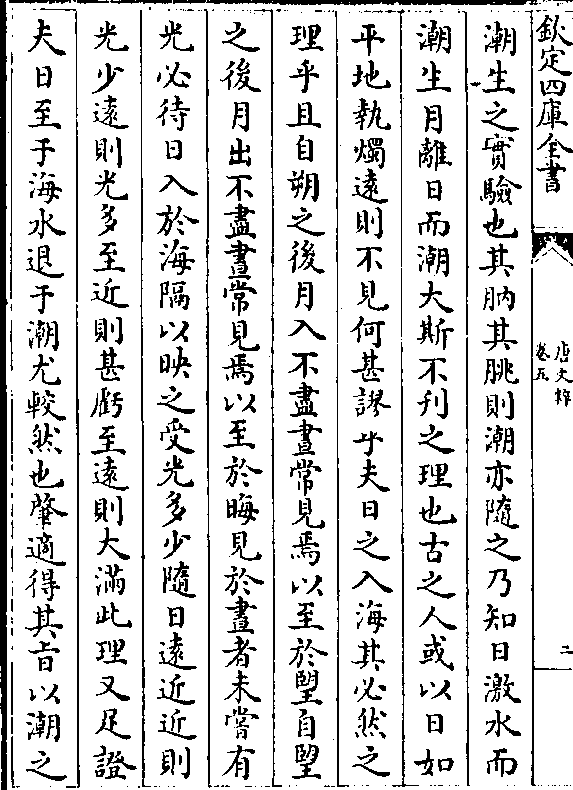 欽定四庫全書
唐文粹
卷五
二
潮生之實驗也其朒其朓則潮亦隨之乃知日激水而
潮生月離日而潮大斯不刋之理也古之人或以日如
平地執燭遠則不見何甚謬乎夫日之入海其必然之
理乎且自朔之後月入不盡晝常見焉以至於朢自朢
之後月出不盡晝常見焉以至於晦見於晝者未嘗有
光必待日入於海隔以映之受光多少隨日遠近近則
光少遠則光多至近則甚虧至遠則大滿此理又足證
夫日至于海水退于潮尤較然也肇適得其旨以潮之